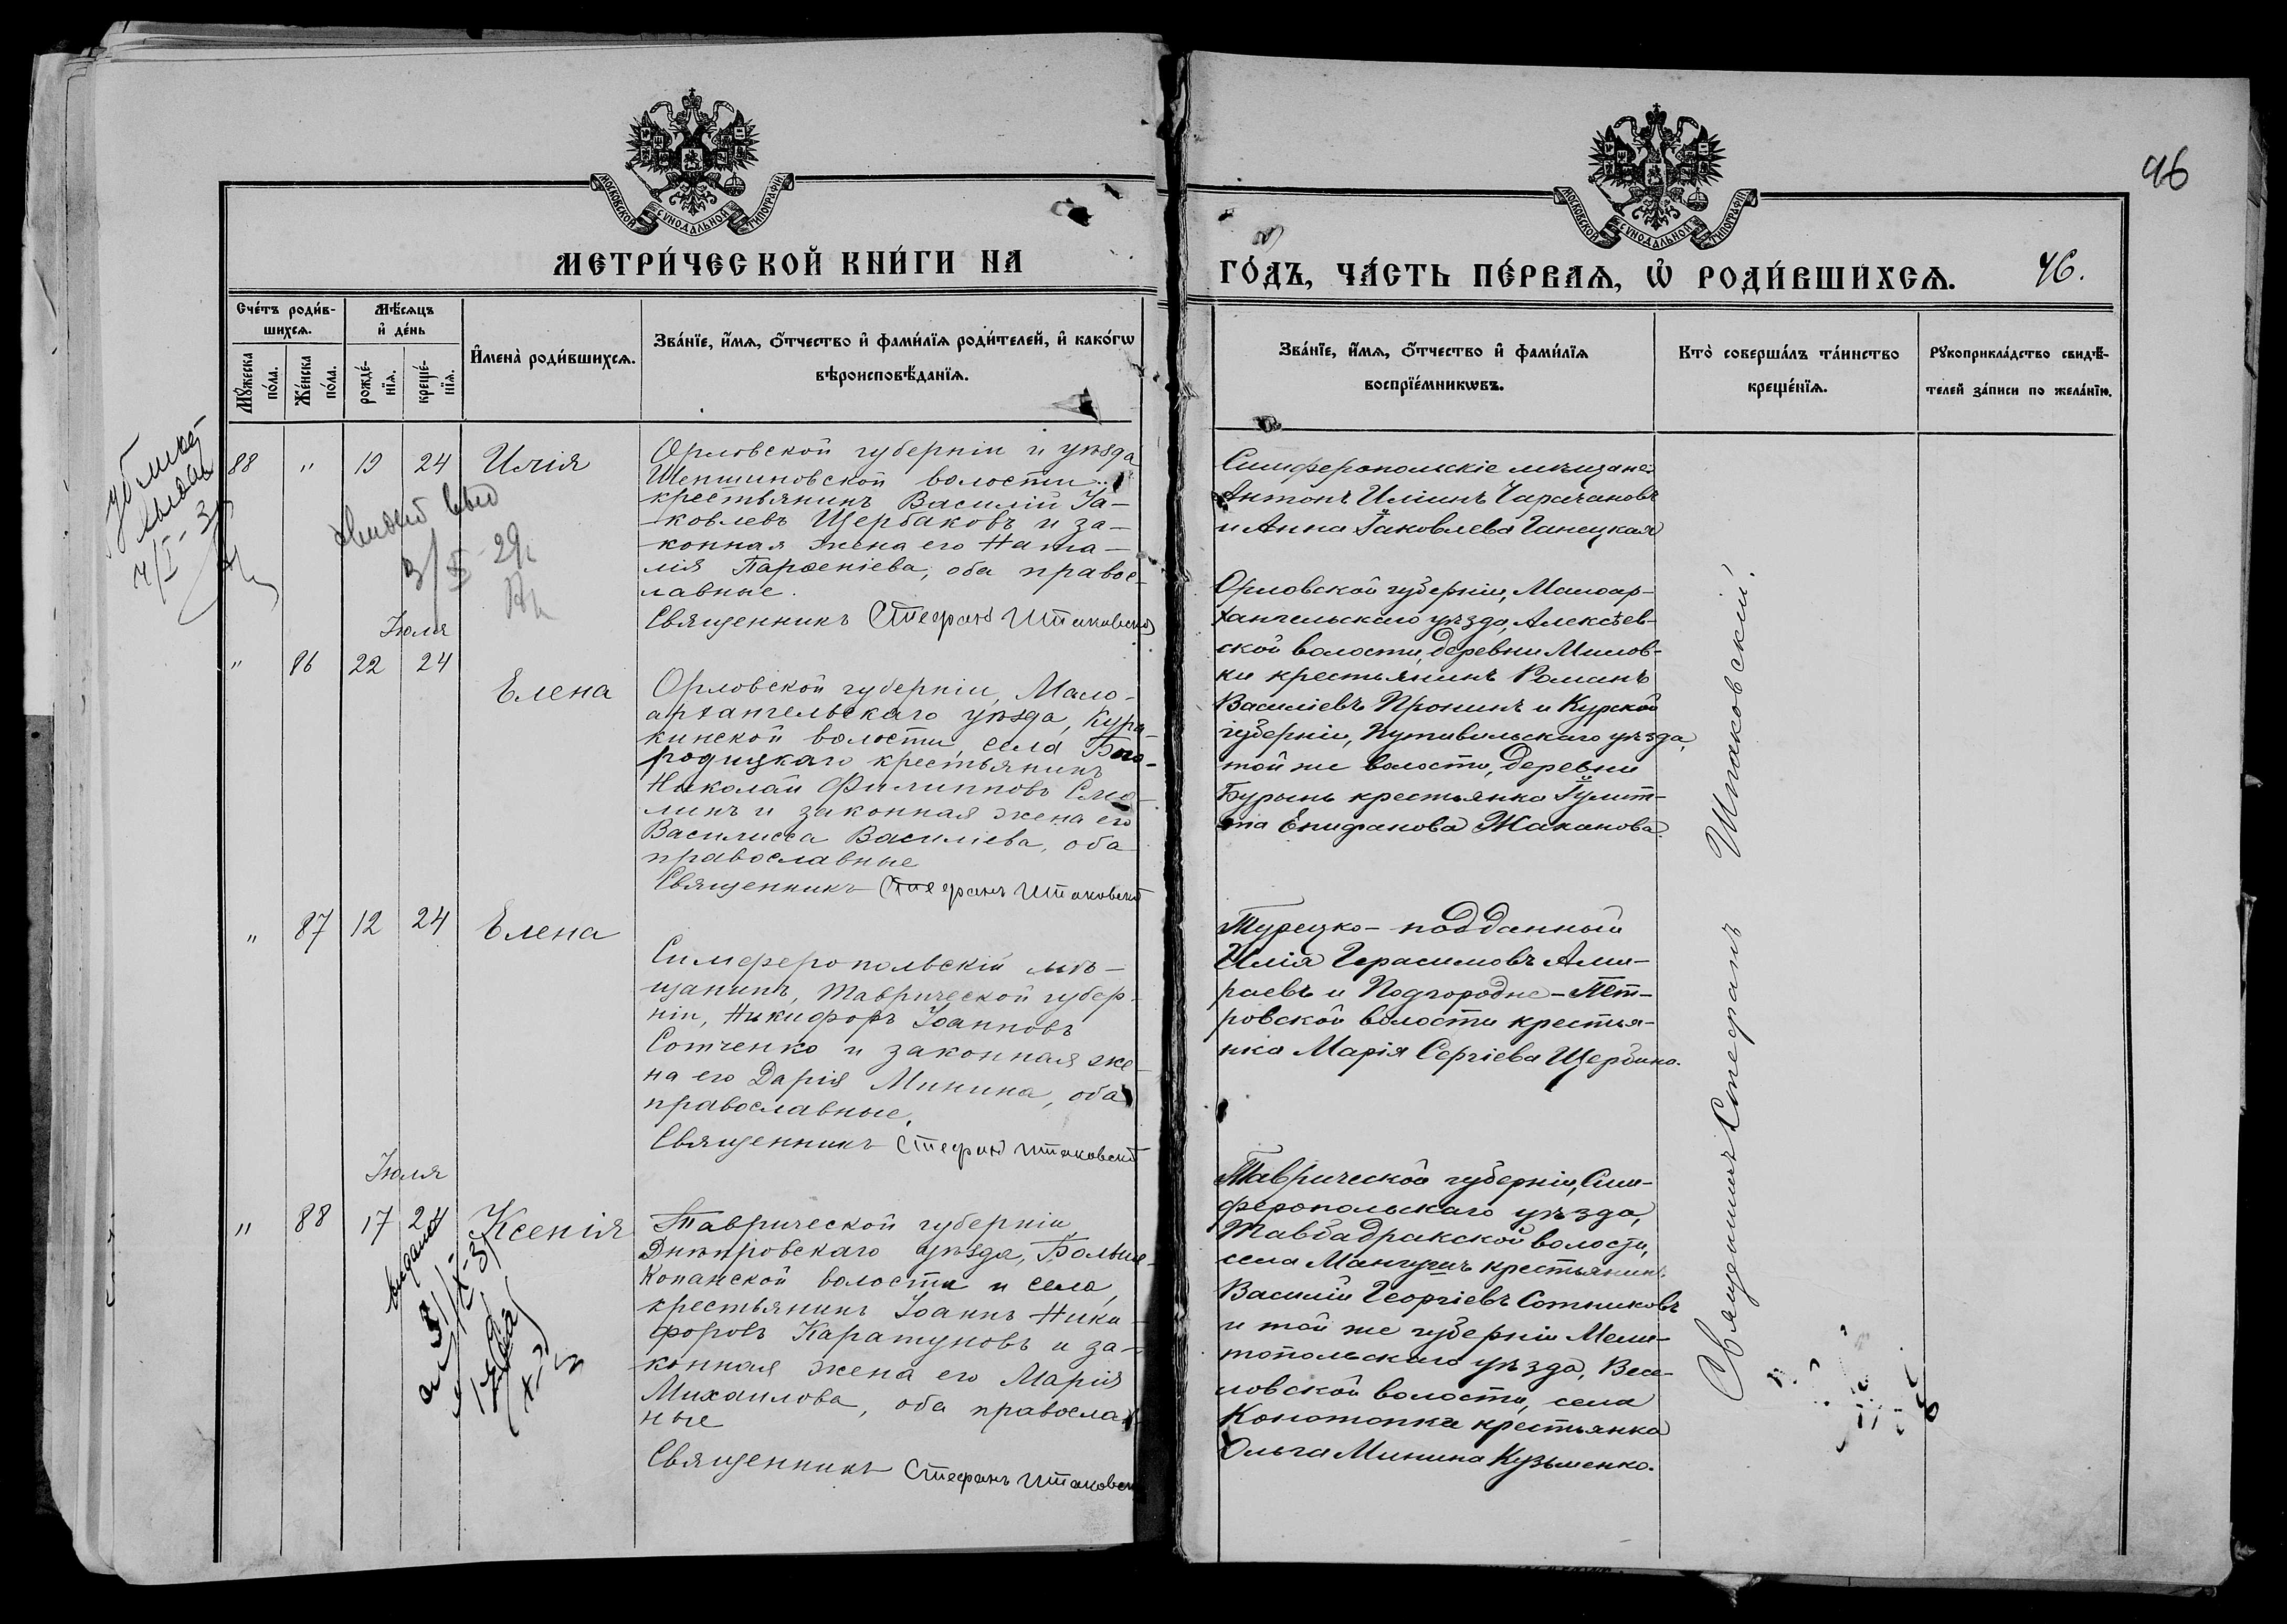 46
МОСКОВСКОЙ СѴНОДАЛЬНОЙ ТИПОГРАФІИ
МОСКОВСКОЙ СѴНОДАЛЬНОЙ ТИПОГРАФІИ
МЕТРИ́ЧЕСКОЙ КНИ́ГИ НА
ГО́ДЪ, ЧА́СТЬ ПЕ́РВАѦ, Ѡ҆ РОДИ́ВШИХСѦ.
46.
Сче́тъ роди́в-
шихсѧ.
Мꙋ́жеска
по́ла.
Же́нска
по́ла.
Мѣ́сѧцъ
и҆ де́нь
рожде́-
нїѧ.
креще́-
нїѧ.
И҆мена̀ роди́вшихсѧ.
Зва́нїе, и҆́мѧ, ѻ҆́тчество и҆ фами́лїѧ роди́телей, и҆ како́гѡ
вѣроисповѣ́данїѧ.
Зва́нїе, и҆́мѧ, ѻ҆́тчество и҆ фами́лїѧ
воспрїе́мникѡвъ.
Кто̀ соверша́лъ та́инство
креще́нїѧ.
Рꙋкоприкла́дство свидѣ́-
телей за́писи по жела́нїю.
88 " 19 24 Илія
Орловской губерніи и уѣзда
волости
крестьянинъ Василій Іа-
ковлевъ Щербаковъ и за-
конная жена его Ната-
лія Парѳеніева, оба правос-
лавные.
Священникъ Стефанъ Шпаковскій
Симферопольскіе мѣщане
Антонъ Иліинъ
и Анна Іаковлева
Іюля
" 86 22 24
Елена
Орловской губерніи, Мало-
архангельскаго уѣзда, Кура-
кинской волости, села Бого-
родицкаго крестьянинъ
Николай Филипповъ
и законная жена его
Василисса Василіева, оба
православные
Священникъ Стефанъ Шпаковскій
Орловской губерніи, Малоар-
хангельскаго уѣзда, Алексѣев-
ской волости, деревни Милов-
ки крестьянинъ Романъ
Василіевъ Пронинъ и Курской
губерніи, Путивльскаго уѣзда,
той же волости, деревни
Бурынь крестьянка Іулит-
та Епифанова Жаканова.
" 87 12 24 Елена
Симферопольскій мѣ-
щанинъ, Таврической губер-
ніи, Никифоръ Іоанновъ
Сотченко и законная же-
на его Дарія Минина, оба
православные.
Священникъ Стефанъ Шпаковскій
Турецко-подданный
Илія Герасимовъ Ами-
раевъ и Подгородне-Пет-
ровской волости крестья-
нка Марія Сергіева Щербина.
Іюля
" 88 17 24 Ксенія
Таврической губерніи
Днѣпровскаго уѣзда, Больше-
Копанской волости и села,
крестьянинъ Іоаннъ Ники-
форовъ Каратуновъ и за-
конная жена его Марія
Михаилова, оба православ-
ные
Священникъ Стефанъ Шпаковскій
Таврической губерніи, Сим-
феропольскаго уѣзда,
волости,
села Мангушъ крестьянинъ
Василій Георгіевъ Сотниковъ
и той же губерніи Мели-
топольскаго уѣзда, Весе-
ловской волости, села
Конотопки крестьянка
Ольга Минина Кузьменко.
Священникъ Стефанъ Шпаковскій.